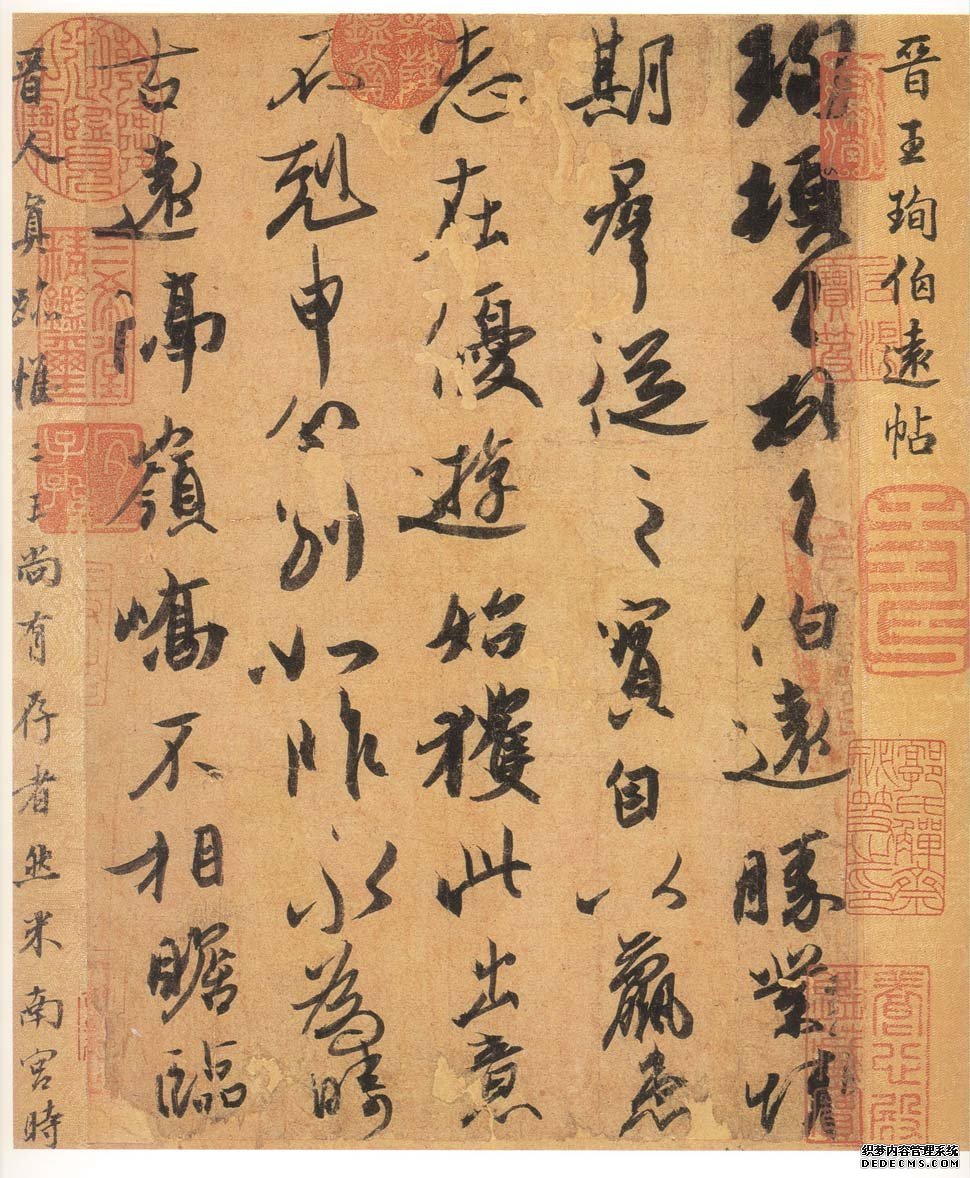 晉王珣伯遠帖
珣頓首頓首伯遠勝業情
期群從之寶自以羸患
志在優遊始獲此出意
不剋申分別如昨永為疇
古遠隔嶺嶠不相瞻臨
晉人真跡惟二王尚有存者然米南宮時
三希堂
宜子孫
織梦内容管理系统
DEDECMS.COM